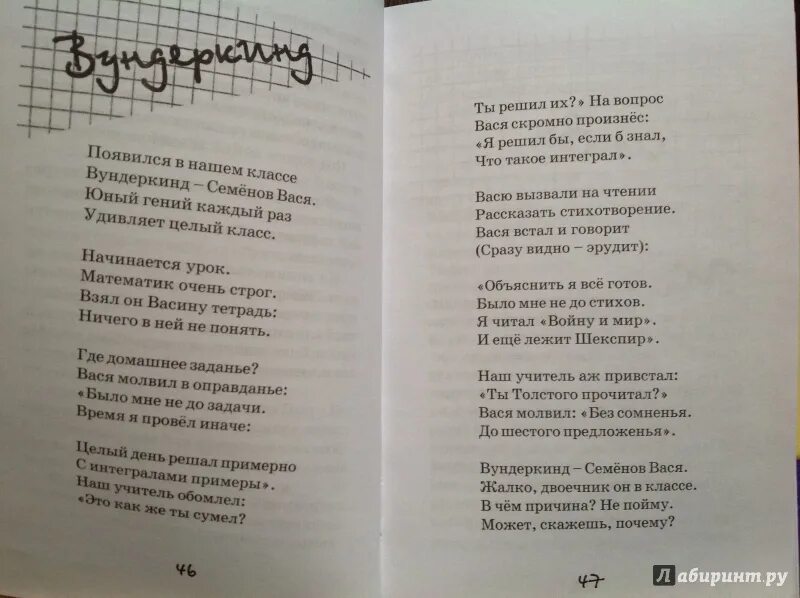 Вундеркинд
Появился в нашем классе
Вундеркинд – Семёнов Вася.
Юный гений каждый раз
Удивляет целый класс.
Начинается урок.
Математик очень строг.
Взял он Васину тетрадь:
Ничего в ней не понять.
Где домашнее заданье?
Вася молвил в оправданье:
«Было мне не до задачи.
Время я провёл иначе:
Целый день решал примерно
С интегралами примеры».
Наш учитель обомлел:
«Это как же ты сумел?
46
Ты решил их?» На вопрос
Вася скромно произнёс:
«Я решил бы, если б знал,
Что такое интеграл».
Васю вызвали на чтении
Рассказать стихотворение.
Вася встал и говорит
(Сразу видно – эрудит):
«Объяснить я всё готов.
Было мне не до стихов.
Я читал «Войну и мир».
И ещё лежит Шекспир».
Наш учитель аж привстал:
«Ты Толстого прочитал?»
Вася молвил: «Без сомненья.
До шестого предложенья».
Вундеркинд – Семёнов Вася.
Жалко, двоечник он в классе.
В чём причина? Не пойму.
Может, скажешь, почему?
47
Лабиринт.ру